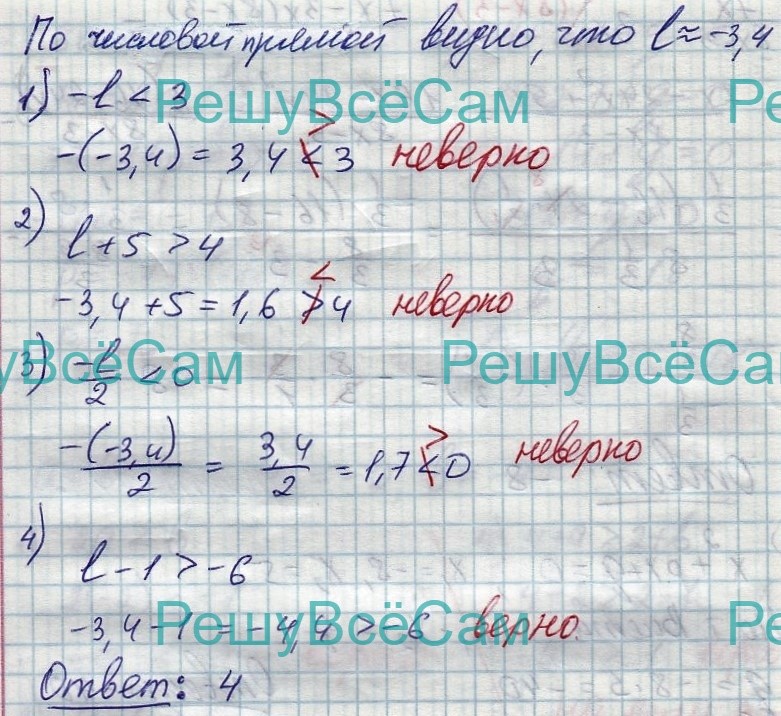 По числовой прямой видно, что l ≈ -3,4
1) -l < 3
РешуВсёСам
Ре
-(-3,4) = 3,4 < 3 неверно
>
2)
l + 5 > 4
<
-3,4 + 5 = 1,6 > 4 неверно
3) -l/2 < 0
уВсёСам
РешуВсёСам
-(-3,4)/2 = 3,4/2 = 1,7 < 0 неверно
>
4)
l - 1 > -6
-3,4 - 1 = -4,4 > -6 верно.
РешуВсёСам
Ре
Ответ: 4